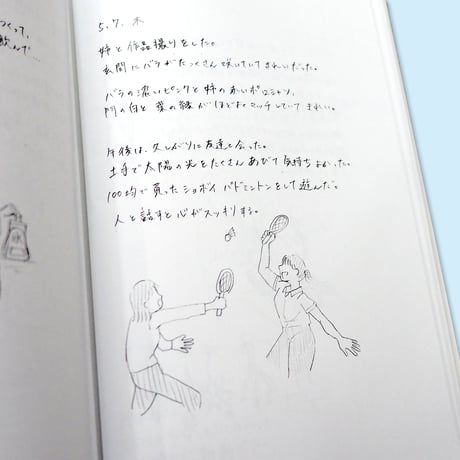 つくって、
飲んで…
5.7. 木
姉と作品撮りをした。
玄関にバラがたくさん咲いていてきれいだった。
バラの濃いピンクと姉の赤いポロシャツ、
門の白と葉の緑がほどよくマッチしていてきれい。
午後は、久しぶりに友達と会った。
土手で太陽の光をたくさんあびて気持ちよかった。
100均で買ったショボイバドミントンをして遊んだ。
人と話すと心がスッキリする。